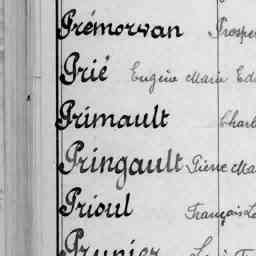 Prémorvan Prosper
Prié Eugène Marie Ed
Primault Charl
Pringault Pierre Ma
Prioul François Lo
Prunier